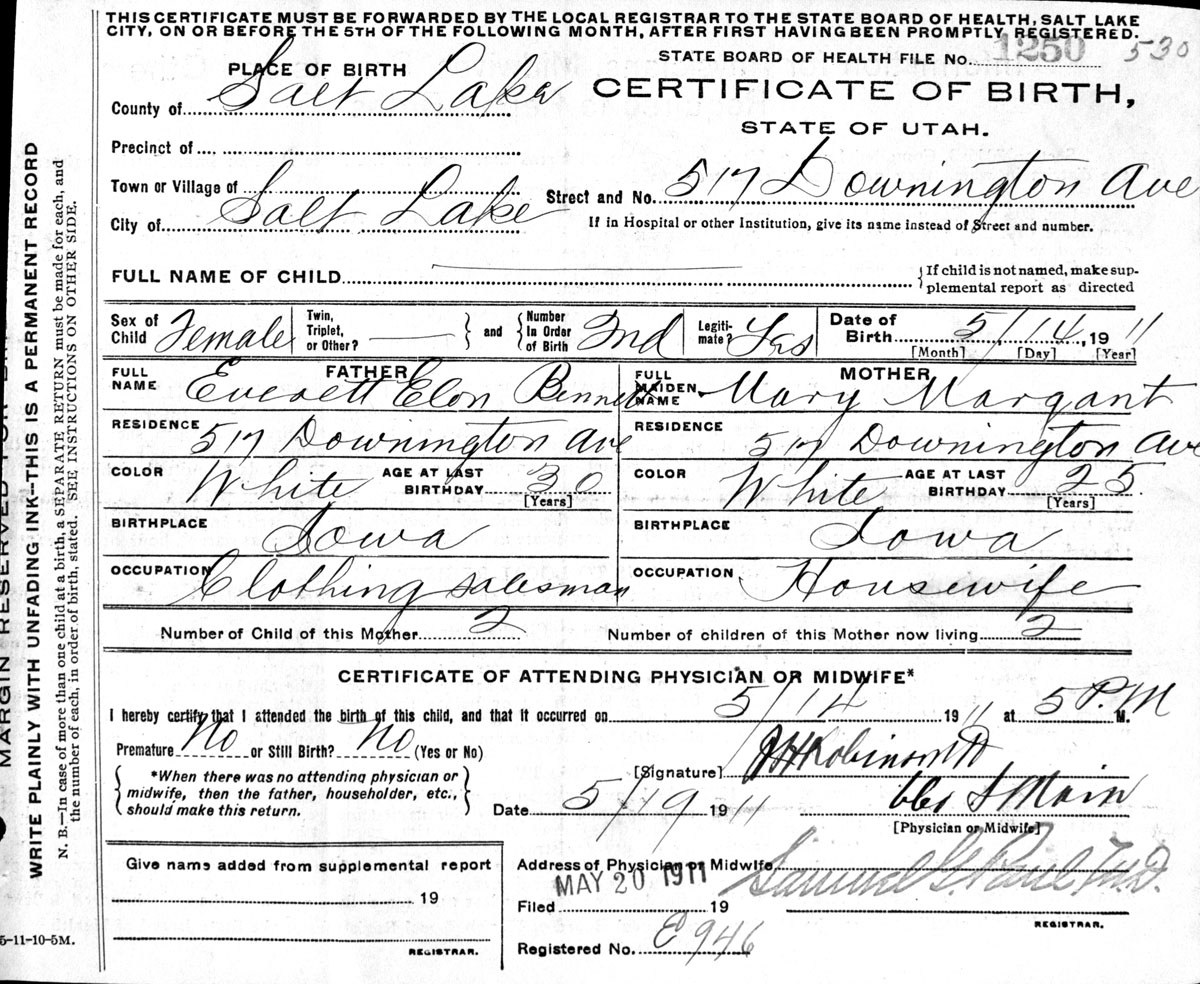 THIS CERTIFICATE MUST BE FORWARDED BY THE LOCAL REGISTRAR TO THE STATE BOARD OF HEALTH, SALT LAKE
CITY, ON OR BEFORE THE 5TH OF THE FOLLOWING MONTH, AFTER FIRST HAVING BEEN PROMPTLY REGISTERED.
STATE BOARD OF HEALTH FILE No. 1250 530
PLACE OF BIRTH
CERTIFICATE OF BIRTH,
County of Salt Lake
STATE OF UTAH.
Precinct of
Town or Village of
Street and No. 517 Downington Ave
City of Salt Lake
If in Hospital or other Institution, give its name instead of Street and number.
FULL NAME OF CHILD
If child is not named, make sup-
plemental report as directed
Sex of Child Female
Twin, Triplet, or Other?
and Number In Order of Birth 2nd
Legiti-mate? Yes
Date of Birth 5/14, 1911
[Month] [Day] [Year]
FATHER
FULL NAME Everett Elon Bennett
MOTHER
FULL MAIDEN NAME Mary Margant
RESIDENCE 517 Downington Ave
RESIDENCE 517 Downington Ave
COLOR White AGE AT LAST BIRTHDAY 30 [Years]
COLOR White AGE AT LAST BIRTHDAY 25 [Years]
BIRTHPLACE Iowa
BIRTHPLACE Iowa
OCCUPATION Clothing salesman
OCCUPATION Housewife
Number of Child of this Mother 2
Number of children of this Mother now living 2
CERTIFICATE OF ATTENDING PHYSICIAN OR MIDWIFE*
I hereby certify that I attended the birth of this child, and that it occurred on 5/14 1911 at 5 P.M M.
Premature No or Still Birth? No (Yes or No)
*When there was no attending physician or
midwife, then the father, householder, etc.,
should make this return.
[Signature] Robinson
Date 5/19 1911
Main
[Physician or Midwife]
Give name added from supplemental report
19
REGISTRAR.
Address of Physician or Midwife
MAY 20 1911
Filed 19
Samuel G. Paul, M.D.
REGISTRAR.
Registered No. E 946
5-11-10-5M.
MARGIN RESERVED FOR
WRITE PLAINLY WITH UNFADING INK—THIS IS A PERMANENT RECORD
N. B.—In case of more than one child at a birth, a SEPARATE RETURN must be made for each, and
the number of each, in order of birth, stated. SEE INSTRUCTIONS ON OTHER SIDE.